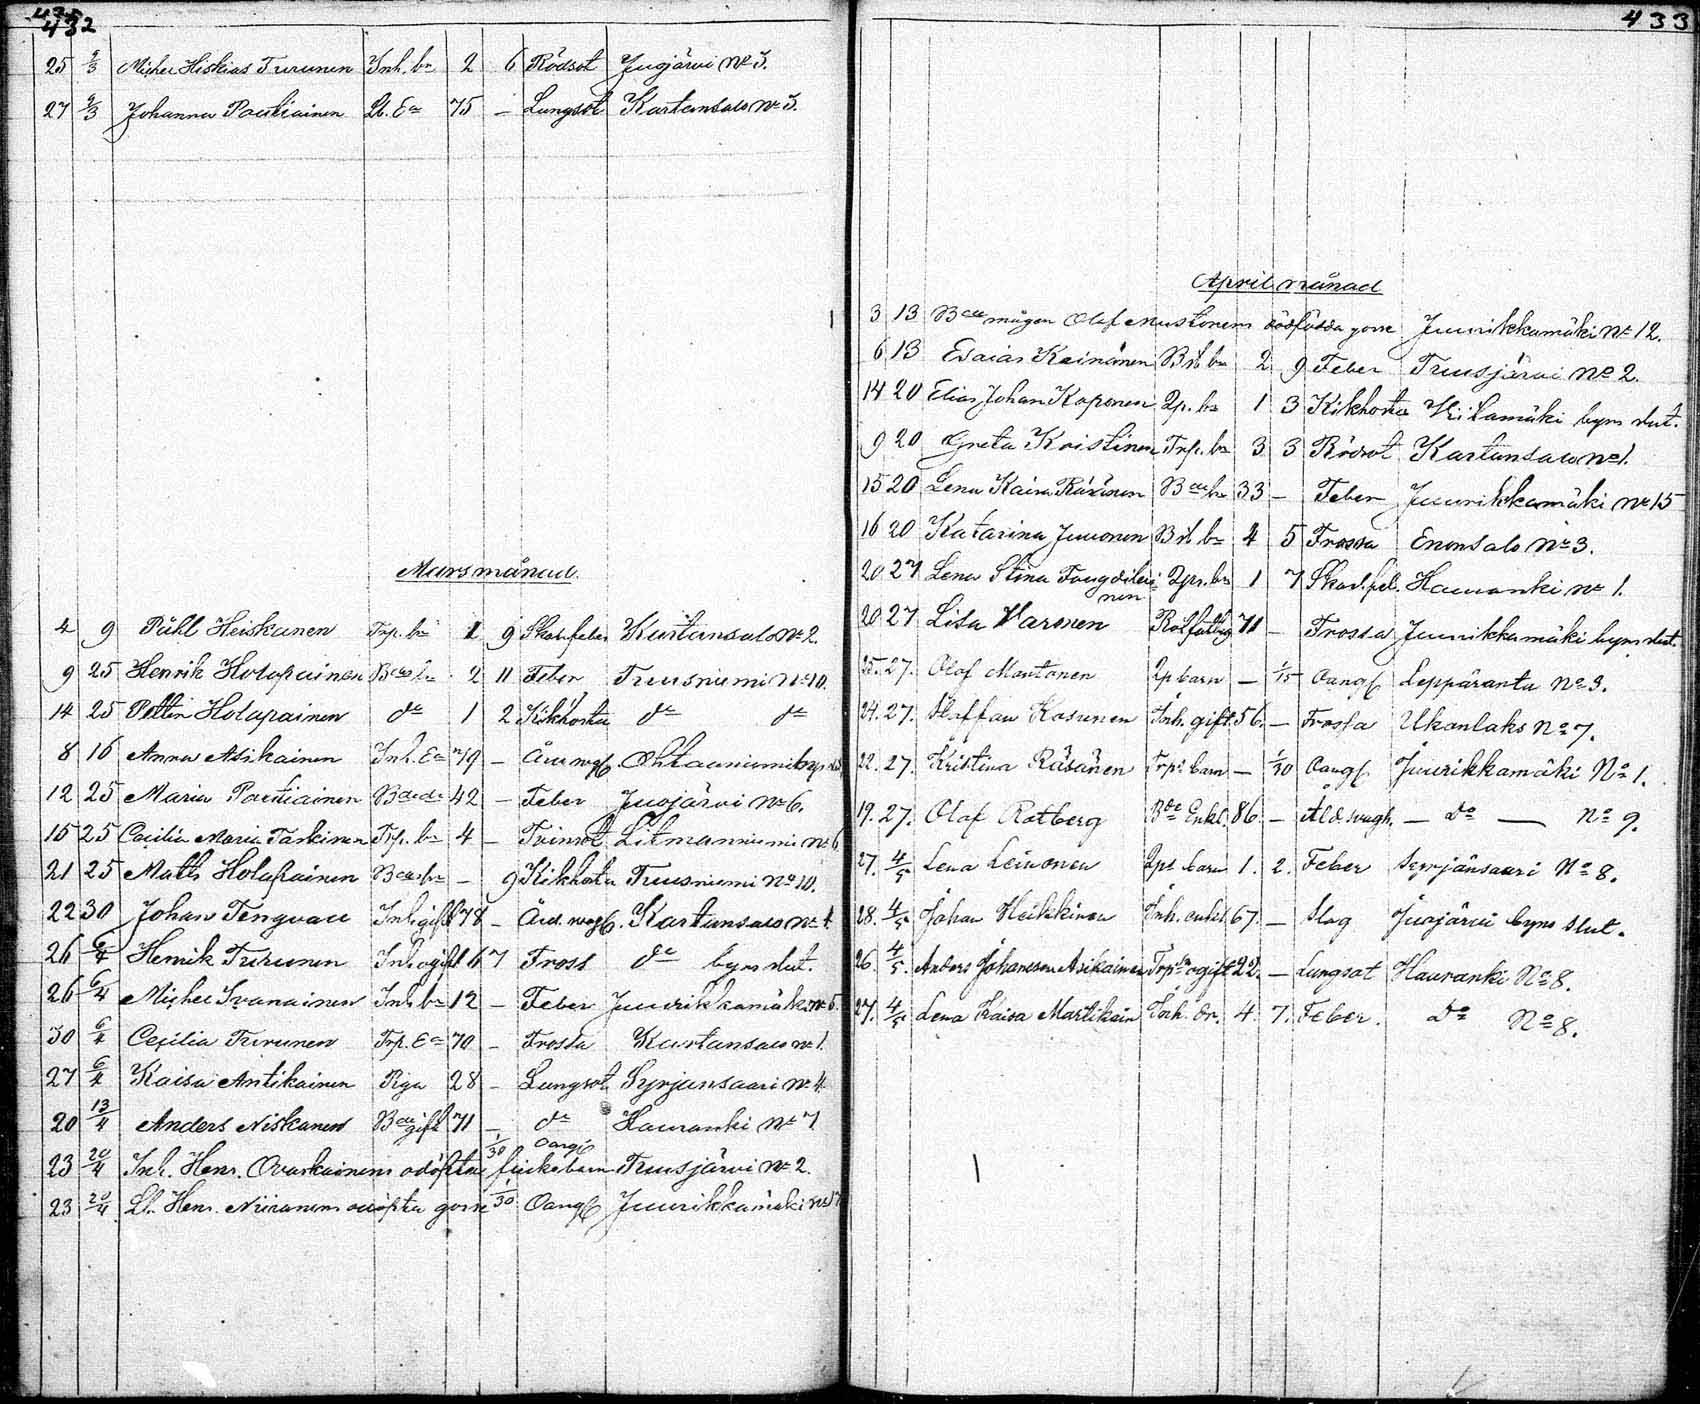 432
25 9/3 Michel Hiskias Turunen Inh. bn 2 6 Rödsot Juojärvi No 5.
27 9/3 Johanna Pautiainen Lt. Ea 75 – Lungsot Kartansalo No 5.
Mars månad.
4 9 Påhl Heiskanen Trp. bn 1 9 Skarl.feber Kartansalo No 2.
9 25 Henrik Holapainen Bdes bn 2 11 Feber Tuusniemi No 10.
14 25 Pettin Holapainen do 1 2 Kikhosta do do
8 16 Anna Asikainen Inh. Ea 79 – Ohtaaniemi
12 25 Maria Pautiainen 42 – Feber Juojärvi No 6.
15 25 Cecilia Maria Tarkinen Trp. bn 4 – Tvinsot Litmaniemi No 6
21 25 Matts Holapainen Bdes bn – 9 Kikhosta Tuusniemi No 10.
22 30 Johan Tengvall Inh. gift 78 – Kartansalo No 4.
26 6/4 Henrik Turunen Inh. ogift 67 Fross do byns slut.
26 6/4 Michel Ivanainen Inh. bn 12 – Feber Juurikkamäki No 5.
30 6/4 Cecilia Turunen Trp. Ea 70 – Frossa Kartansalo No 1.
27 6/4 Kaisa Antikainen Piga 28 – Lungsot Syrjänsaari No 4.
20 13/4 Anders Niskanen Bde gift 71 – do Hauranki No 7
23 20/4 Inh. Henr. Ovaskainens odöpta flickebarn 1/30 Oangif Tuusjärvi No 2.
23 20/4 Lt. Henr. Niiranens odöpta gosse 1/30 Oangif Juurikkamäki No 17
433
April månad
3 13 Bde mågen Olof Mustonens dödfödda gosse Juurikkamäki No 12.
6 13 Esaias Keinänen Bdt bn 2 9 Feber Tuusjärvi No 2.
14 20 Elias Johan Koponen Lp. bn 1 3 Kikhosta Viitamäki byns slut.
9 20 Greta Koistinen Trp. bn 3 3 Rödsot Kartansalo No 1.
15 20 Lena Kaisa Räsänen 33 – Feber Juurikkamäki No 15
16 20 Katarina Juvonen Bdt bn 4 5 Frossa Enonsalo No 3.
20 27 Lena Stina 1 7 Skarl.feb. Hauranki No 1.
20 27 Lisa Varonen Rotfattig 71 – Frossa Juurikkamäki byns slut.
25. 27. Olof Mantonen Lp barn – 1/15 Oangf Leppäranta No 3.
24. 27. Staffan Kosunen Inh. gift 56. – Frossa Ukonlaks No 7.
22. 27. Kristina Räsänen Trps barn – 1/30 Oangf Juurikkamäki No 1.
19. 27. Olof Rotberg Bde Enkl. 86. – Åld. svagh. – do – No 9.
27. 4/5 Lena Leinonen Lps barn 1. 2. Feber Syrjänsaari No 8.
28. 4/5 Johan Heikkinen Inh. enkl. 67. – Slag Juojärvi byns slut.
26. 4/5. Anders Johansson Asikainen Trps Sn ogift 22. – Lungsot Hauranki No 8.
27. 4/5 Lena Kaisa Martikain Inh. br. 4. 7. Feber. do No 8.